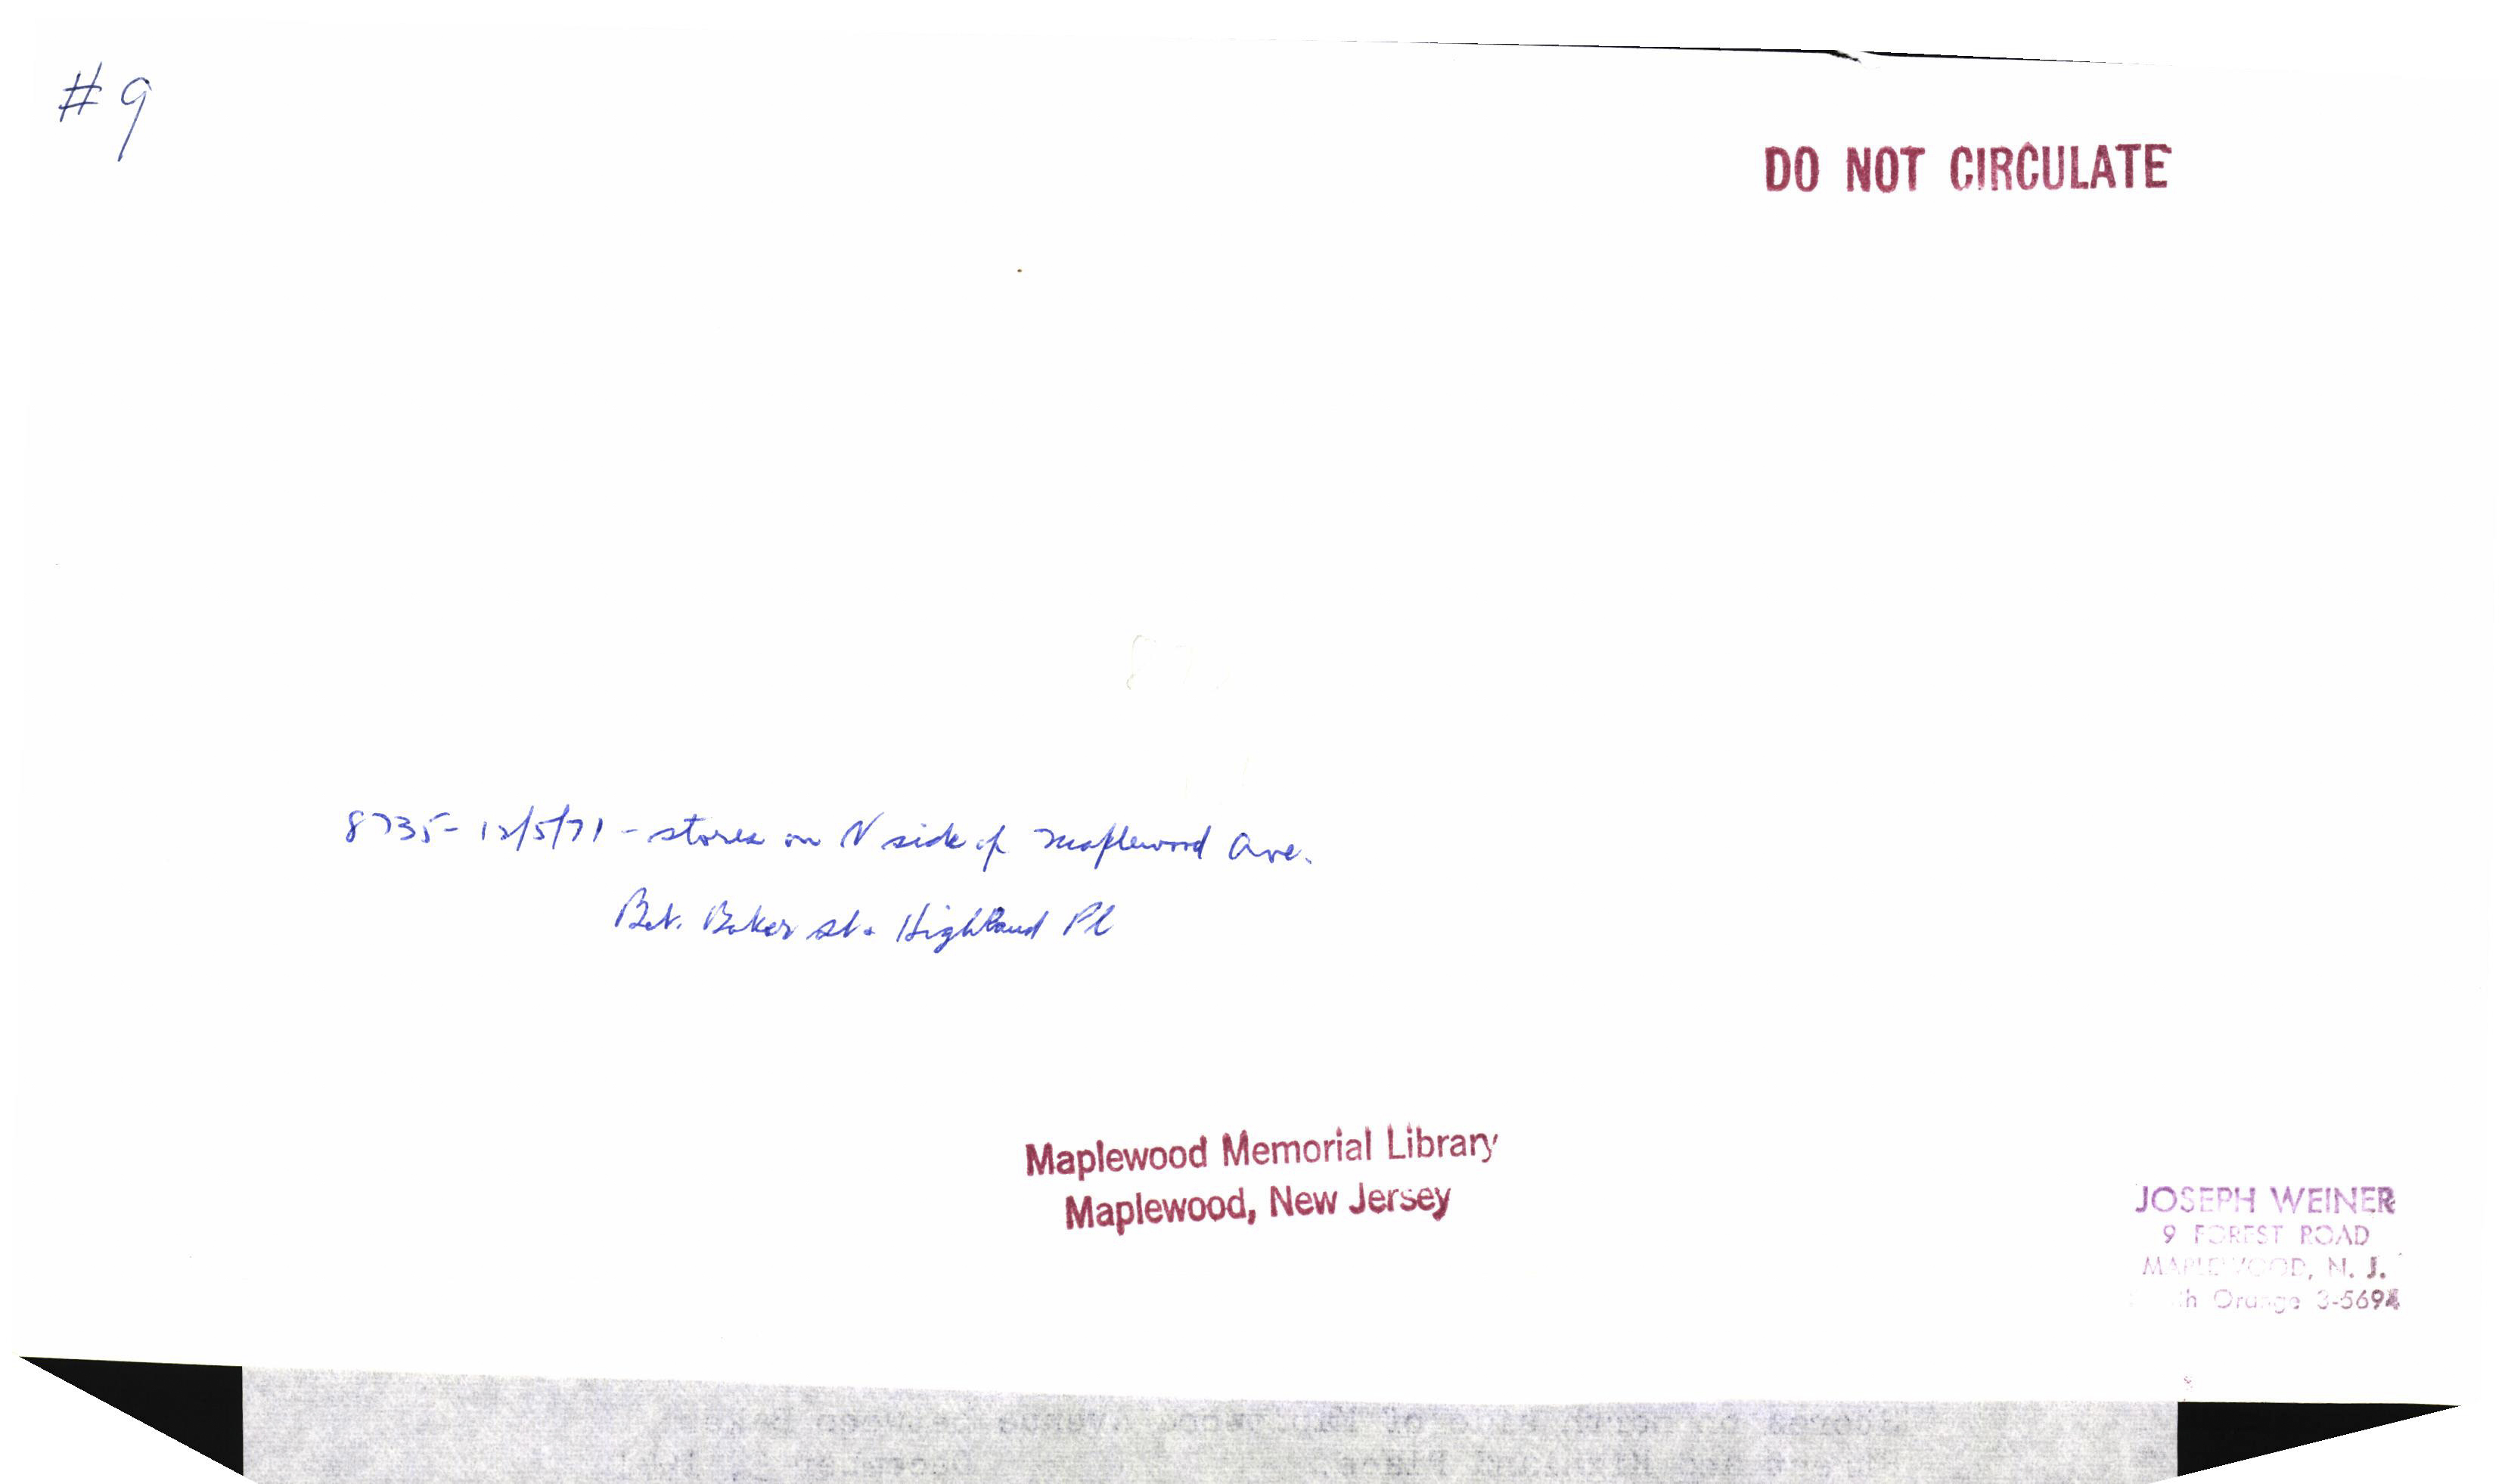 #9
DO NOT CIRCULATE
8735- 12/5/71 - stores on N side of Maplewood Ave.
Bet. Baker St. & Highland Pl
Maplewood Memorial Library
Maplewood, New Jersey
JOSEPH WEINER
9 FOREST ROAD
MAPLEWOOD, N. J.
Orange 3-569